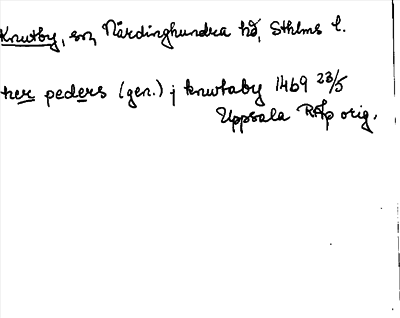 Knutby, sn, Närdinghundra hd, Sthlms l.
her peders (gen.) j knwtaby 1469 23/5
Uppsala RAp orig.